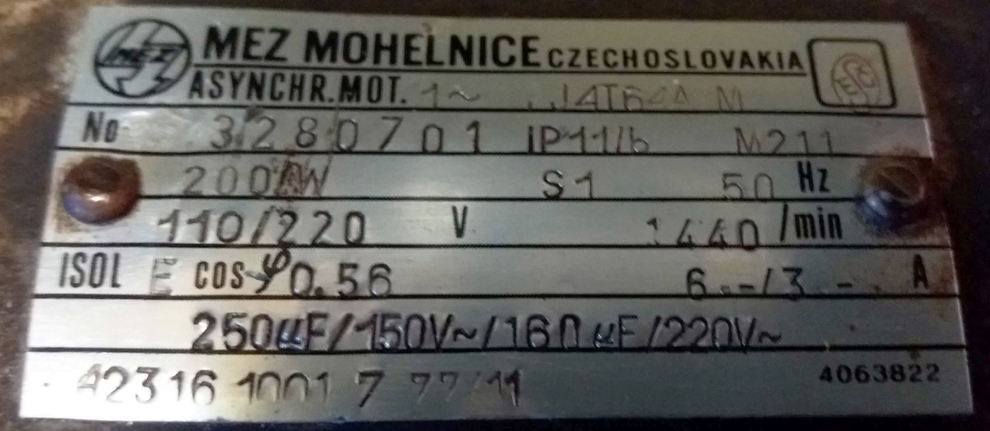 MEZ MEZ MOHELNICE CZECHOSLOVAKIA ESC
ASYNCHR.MOT. 1~ M
No 3280701 IP11/b M211
200 W S1 50 Hz
110/220 V 1440 /min
ISOL E cos φ 0.56 6.-/3.-. A
250µF/150V~/160µF/220V~
42316 1001 7 77/11 4063822